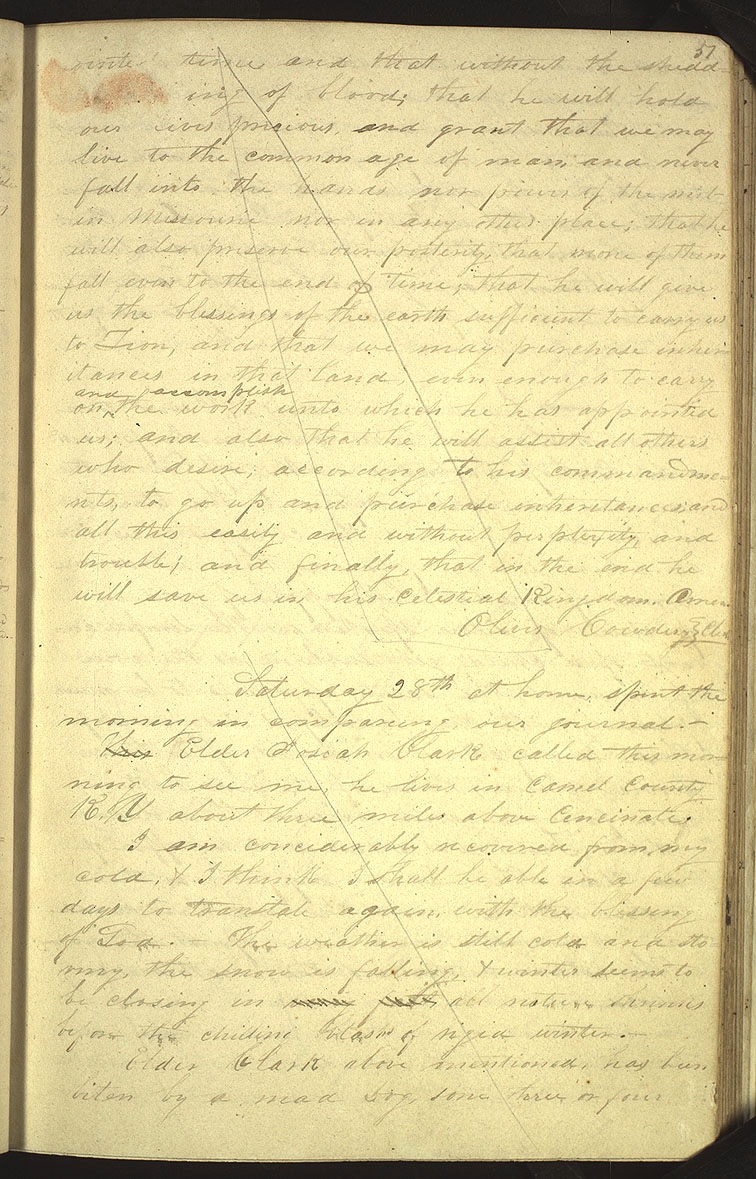 51
time and that without the shedd-
ing of blood; that he will hold
our lives precious, and grant that we may
live to the common age of man, and never
fall into the hands nor power of the mob
in Missourie nor in any other place; that he
will also preserve our posterity, that none of them
fall even to the end of time; that he will give
us the blessings of the earth sufficient to carry us
to Zion, and that we may purchase inher-
itances in that land, even enough to carry
and accomplish
on the work unto which he has appointed
us; and also that he will assist all others
who desire, according to his commandme-
nts, to go up and purchase inheritances, and
all this easily and without perplexity, and
trouble; and finally, that in the end he
will save us in his Celestial Kingdom. Amen.
Oliver Cowdery
Saturday 28th at home, spent the
morning in comparing our journal.—
This Elder Josiah Clark called this mor-
ning to see me, he lives in Camel County
K.Y about three miles above Cincinate.
I am conciderably recovered from my
cold, & I think I shall be able in a few
days to translate again, with the blessing
of God. — The weather is still cold and sto-
rmy, the snow is falling, & winter seems to
be closing in all nature shrinks
before the chilling blasts of rigid winter.—
Elder Clark above mentioned, has been
biten by a mad dog, some three or four